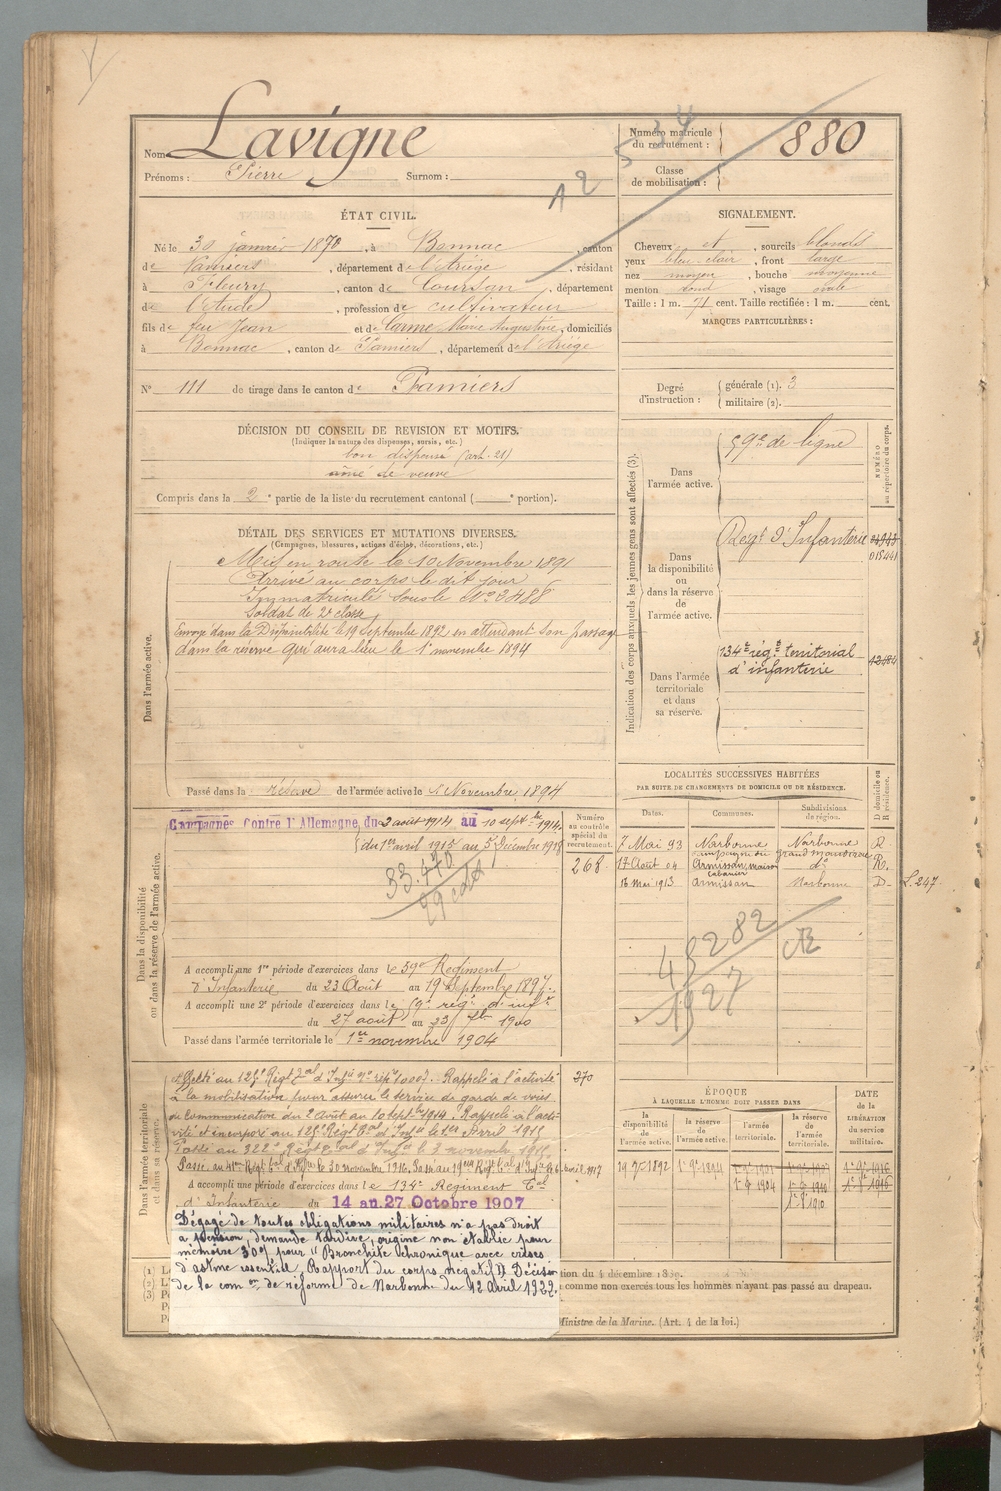 Nom Lavigne
Prénoms : Pierre Surnom :
Numéro matricule du recrutement : 880
Classe de mobilisation :
ÉTAT CIVIL.
Né le 30 janvier 1870, à Bonnac, canton
de Pamiers, département de l'Ariège, résidant
à Fleury, canton de Coursan, département
de l'Aude, profession de cultivateur
fils de feu Jean et de Carme Marie Augustine, domiciliés
à Bonnac, canton de Pamiers, département de l'Ariège
N° 111 de tirage dans le canton de Pamiers
SIGNALEMENT.
Cheveux et, sourcils blonds
yeux bleu-clair, front large
nez moyen, bouche moyenne
menton rond, visage ovale
Taille : 1 m. 71 cent. Taille rectifiée : 1 m. cent.
MARQUES PARTICULIÈRES :
Degré d'instruction : générale (1). 3
militaire (2).
DÉCISION DU CONSEIL DE REVISION ET MOTIFS.
(Indiquer la nature des dispenses, sursis, etc.)
bon dispensé (art. 21)
aîné de veuve
Compris dans la 2e partie de la liste du recrutement cantonal ( e portion).
DÉTAIL DES SERVICES ET MUTATIONS DIVERSES.
(Campagnes, blessures, actions d'éclat, décorations, etc.)
Dans l'armée active.
Mis en route le 10 Novembre 1891
Arrivé au corps le dit jour
Immatriculé sous le N° 3488
Soldat de 2e classe
Envoyé dans la Disponibilité le 19 septembre 1892 en attendant son passage
dans la réserve qui aura lieu le 1er novembre 1894
Passé dans la réserve de l'armée active le 1 Novembre 1894
Indication des corps auxquels les jeunes gens sont affectés (3).
NUMÉRO au répertoire du corps.
Dans l'armée active.
59e de ligne
Dans la disponibilité ou dans la réserve de l'armée active.
Régt d'Infanterie
015441
Dans l'armée territoriale et dans sa réserve.
134e régt territorial
d'infanterie
12184
LOCALITÉS SUCCESSIVES HABITÉES
PAR SUITE DE CHANGEMENTS DE DOMICILE OU DE RÉSIDENCE.
Dates. Communes. Subdivisions de région. D domicile ou R résidence.
7 Mai 93 Narbonne Narbonne R.
17 Août 04 Armissan, maison do R.
16 Mai 1913 Armissan Narbonne D. L. 247
48282
1927
Dans la disponibilité ou dans la réserve de l'armée active.
Campagnes contre l'Allemagne, du 2 août 1914 au 10 septbre 1914.
(du 1er avril 1915 au 5 Décembre 1918
Numéro au contrôle spécial du recrutement.
268
A accompli une 1re période d'exercices dans le 59e Régiment
d'Infanterie du 23 Août au 19 Septembre 1897.
A accompli une 2e période d'exercices dans le 59e régt d'inf
du 27 août au 23 1900
Passé dans l'armée territoriale le 1er novembre 1904
Dans l'armée territoriale et dans sa réserve.
270
à la mobilisation pour assurer le service de garde de voies
de Communication du 2 août au 10 septbre 1914. Rappelé à l'acti-
vité et incorporé au 125e Régt Tal d'Infie le 1er Avril 1915
Passé au 322e Régt Tal d'Infie le 3 novembre 1915.
Passé au 41e Régt Tal d'Infie le 30 novembre 1916, Passé au 19e Régt Tal d'Infie le 6 avril 1917
A accompli une période d'exercices dans le 134e Régiment Tal
d'Infanterie du 14 au 27 Octobre 1907
Dégagé de toutes obligations militaires n'a pas droit
à pension, demande tardive, origine non établie pour
mémoire 30% pour "Bronchite chronique avec crises
d'astme essentiel. Rapport du corps négatif". Décision
de la com on de réforme de Narbonne du 12 Avril 1922.
ÉPOQUE
À LAQUELLE L'HOMME DOIT PASSER DANS
la disponibilité de l'armée active. la réserve de l'armée active. l'armée territoriale. la réserve de l'armée territoriale.
DATE de la LIBÉRATION du service militaire.
19 7bre 1892 1er 9bre 1894
1904 1910
1er 1910
tion du 4 décembre 1889.
comme non exercés tous les hommes n'ayant pas passé au drapeau.
Ministre de la Marine. (Art. 4 de la loi.)